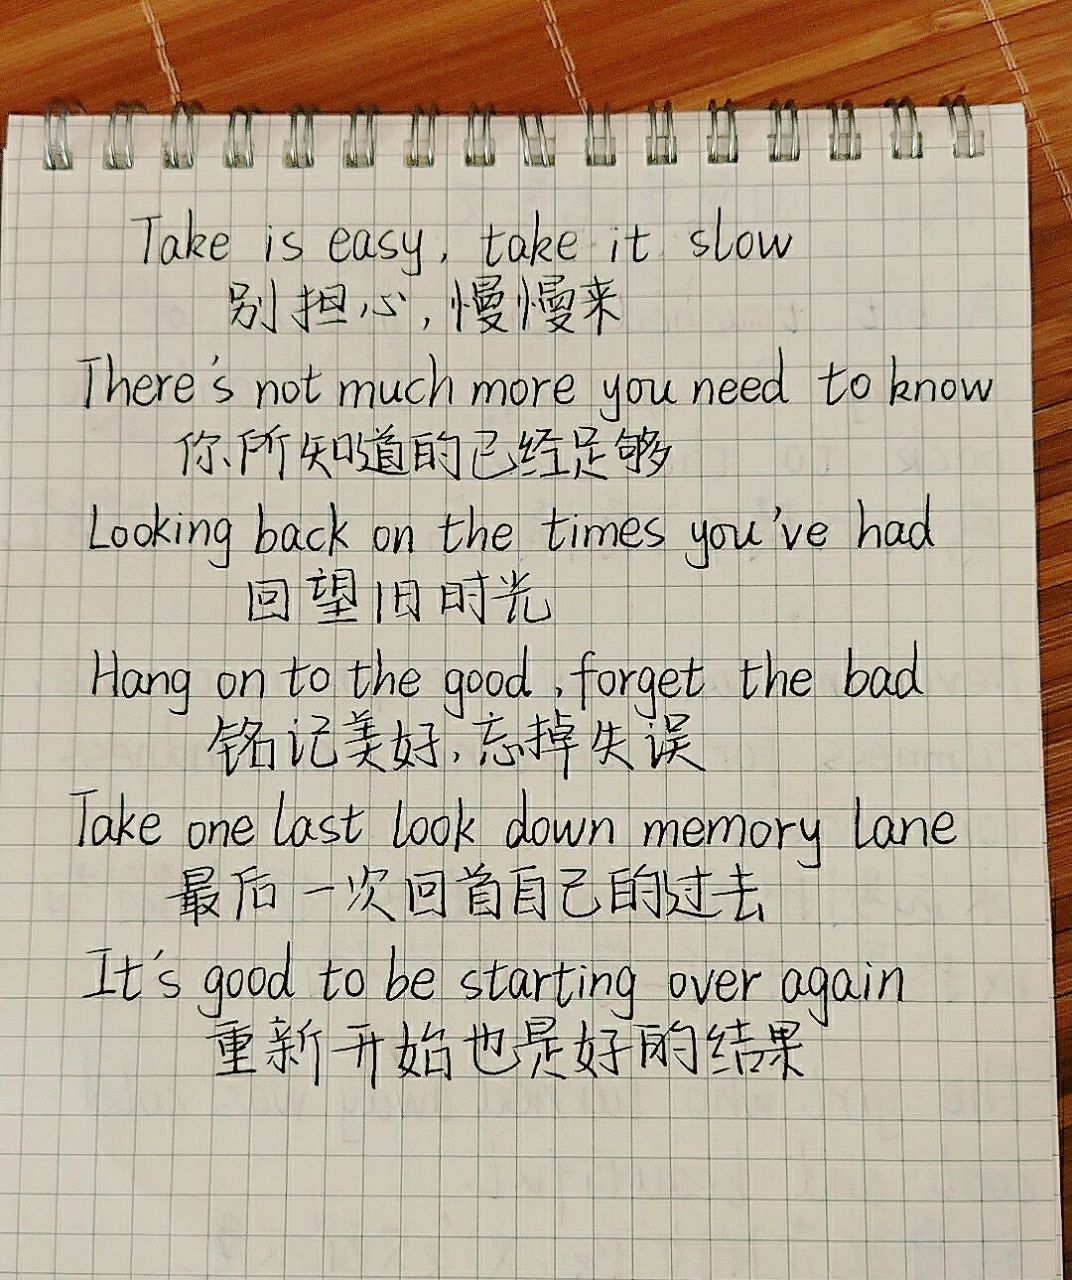 Take is easy, take it slow
别担心,慢慢来
There's not much more you need to know
你所知道的已经足够
Looking back on the times you've had
回望旧时光
Hang on to the good, forget the bad
铭记美好,忘掉失误
Take one last look down memory lane
最后一次回首自己的过去
It's good to be starting over again
重新开始也是好的结果